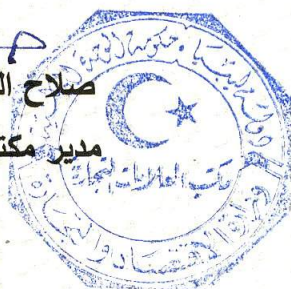 صلاح ال
مدير مكتب
دولة ليبيا حكومة الوفاق
مكتب العلامات التجارية
وزارة الاقتصاد والتجارة